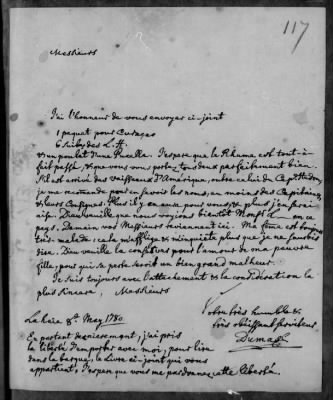 117
Messieurs
J'ai l'honneur de vous envoyer ci-joint
1 paquet pour Curaçao
6 des L. H.
& un poulet d'une Pucelle. J'espere que le Rhume est tout-à-
fait passé, & que vous vous portez tous deux parfaitement bien.
S'il est arrivé des vaisseaux d'Amérique, outre celui du Capit.
je me recommande pour en savoir les noms, au moins des Capitaines
& leurs Consignes. Plus il y en aura pour vous, & plus j'en serai
Dieu veuille que nous voyions bientôt en ce
pays. Demain vos Messieurs reviennent ici. Ma femme est toujours
très-malade: cela m'afflige & m'inquiete plus que je ne saurois
dire. Dieu veuille la conserver pour l'amour de ma pauvre
fille, pour qui sa perte seroit un bien grand malheur.
Je suis toujours avec l'attachement & la consideration la
plus sincere, Messieurs
Votre très humble &
très obéissant serviteur
Dumas
La haie 8e. May 1780
En partant dernierement, j'ai pris
la liberté d'emporter avec moi, pour lire
dans la barque, le Livre ci-joint qui vous
appartient; j'espere que vous me pardonnez cette liberté.